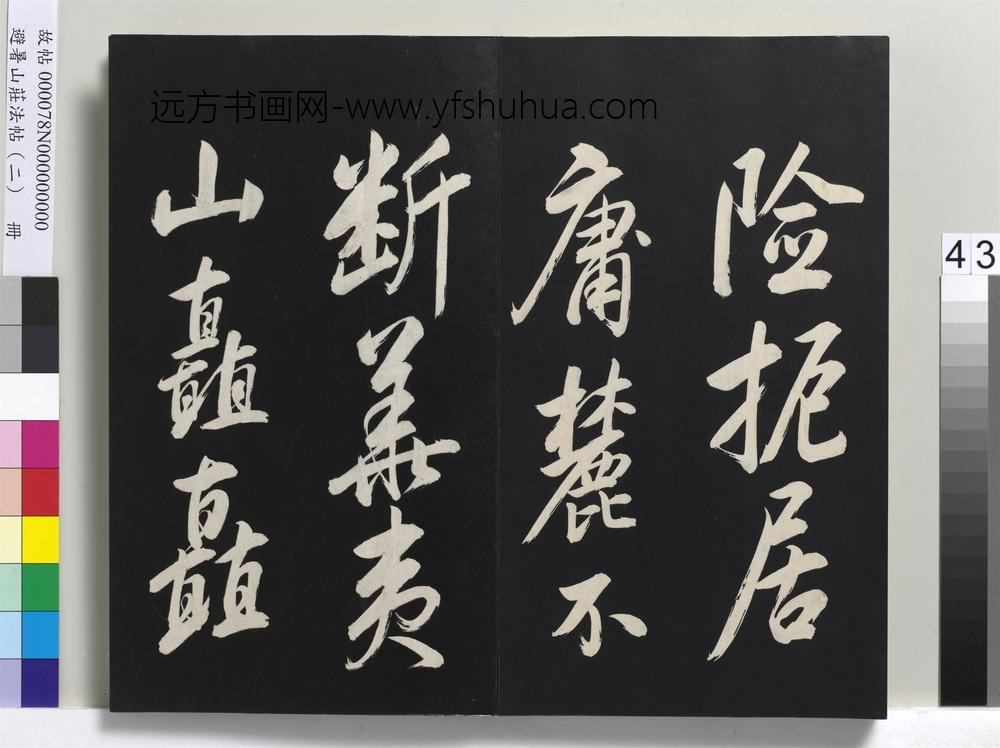 险扼居
庸麓不
断華夷
山矗矗
远方书画网-www.yfshuhua.com
故帖 000078N000000000
避暑山莊法帖（二） 冊
43